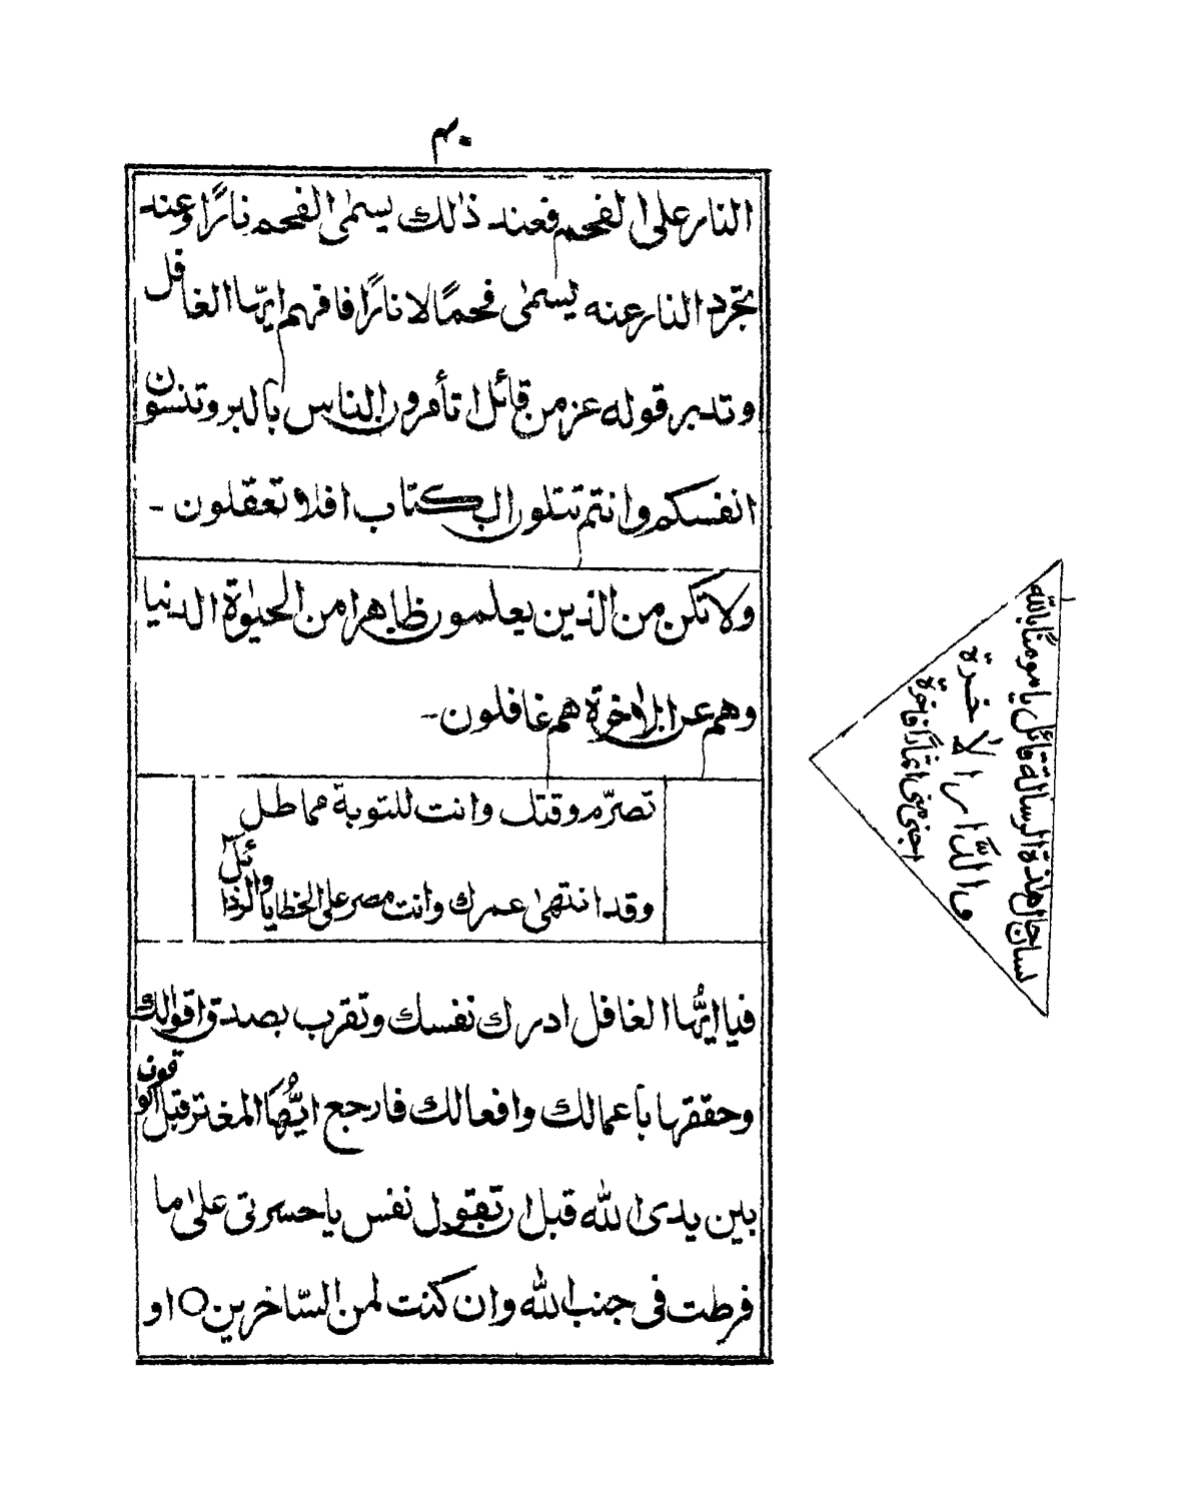 ۴۰
النار على الفحم فعند ذالك يسمى الفحم نارًا وعند
تجرد النار عنه يسمى فحمًا لا نارًا فافهم ايها الغافل
وتدبر قوله عز من قائل اتأمرون الناس بالبر وتنسون
انفسكم وانتم تتلون الكتاب افلا تعقلون -
ولا تكن من الذين يعلمون ظاهرا من الحيٰوة الدنيا
وهم عن الاخرة هم غافلون -
تصرّم وقتك وانت للتوبة مماطل
وقد انتهى عمرك وانت مصر على الخطايا والرذائل
فيا ايُّها الغافل ادرك نفسك وتقرب بصدق اقوالك
وحققها باعمالك وافعالك فارجع ايُّها المغتر قبل الوقوف
بين يدى الله قبل ان تقول نفس ياحسرتى على ما
فرطت فى جنب الله وان كنت لمن السّاخرين ○ او
لسان حال هذة الرسالة قائل يا مومنًا بالله
والدَّار الاٰخرة
اجنى منى اثمارًا فاخرة